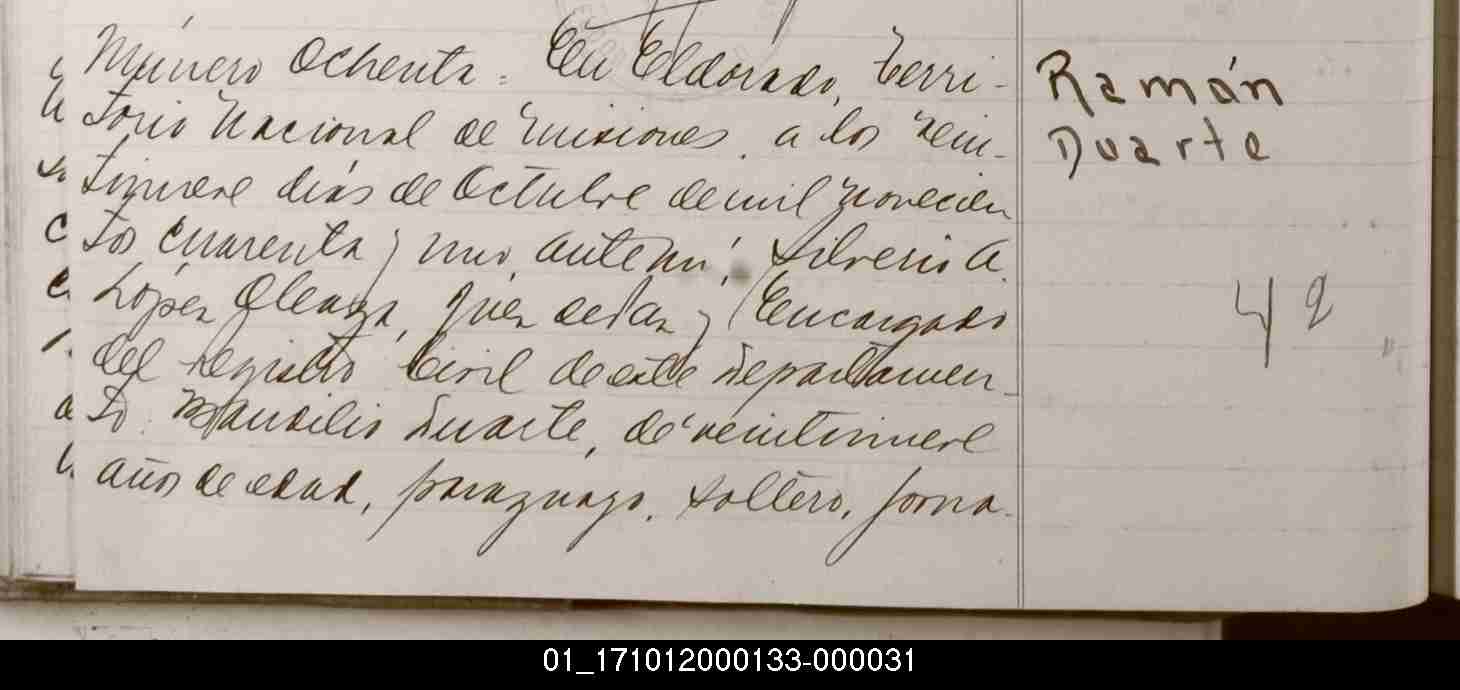 Número Ochenta = En Eldorado, Terri-
torio Nacional de Misiones, a los vein-
tinueve días de Octubre de mil novecien
tos cuarenta y uno, ante mí, Silverio A.
López Oleaga, Juez de Paz y Encargado
del registro Civil de este Departamen-
to. Mansilio Duarte, de veintinueve
años de edad, paraguayo, soltero, jorna-
Ramón
Duarte
42
01_171012000133-000031